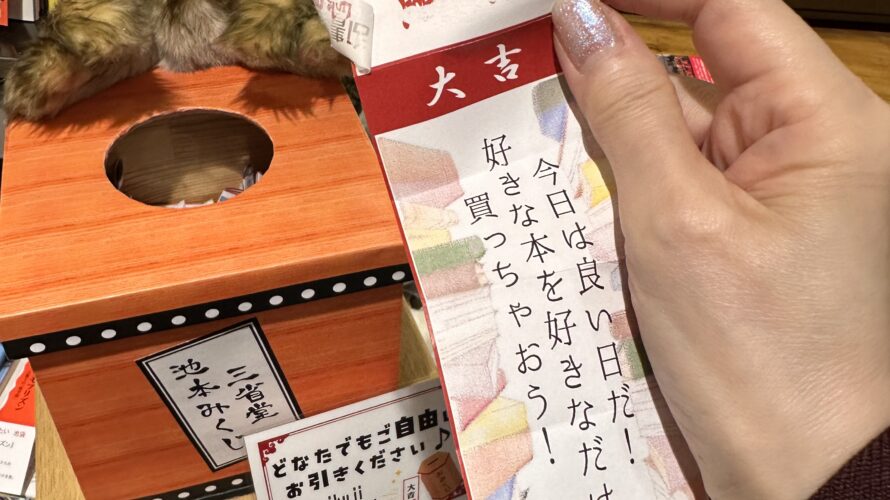 大吉
今日は良い日だ！
好きな本を好きなだけ
買っちゃおう！
三省堂
池本みくじ
どなたでもご自由に
お引きください♪
大吉